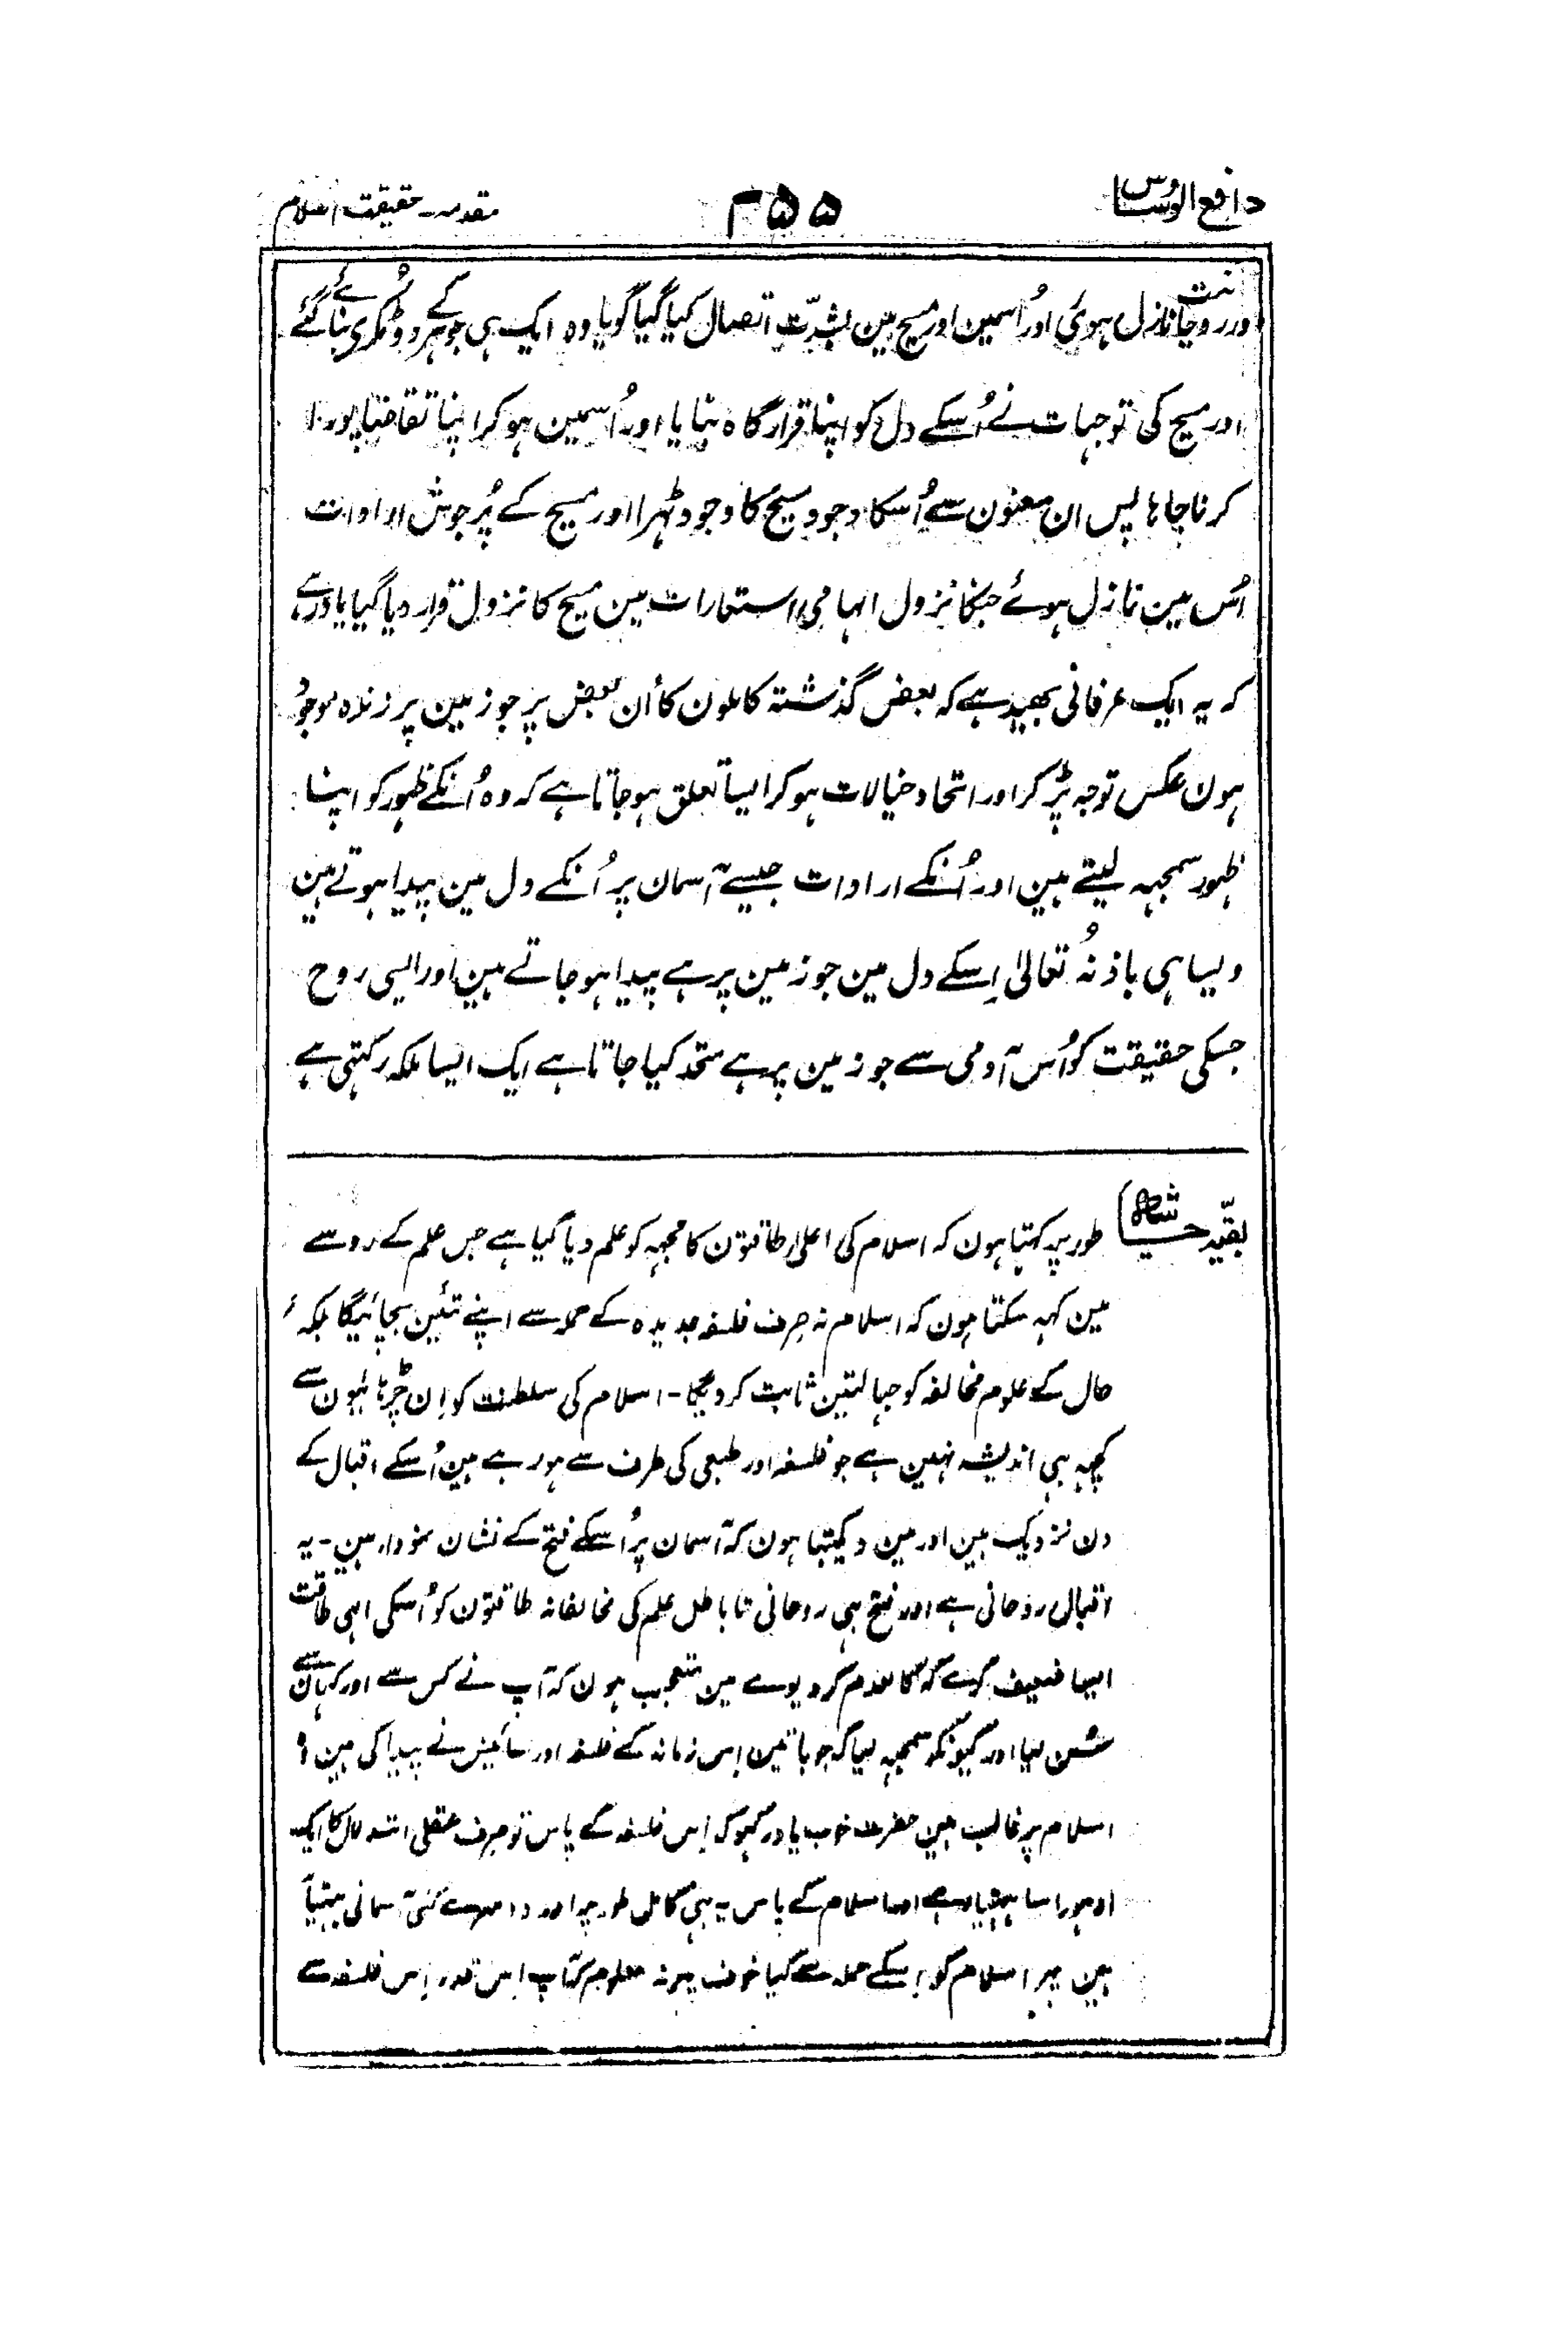 دافع الوساوس
۲۵۵
مقدمہ-حقیقت اسلام
اور روحانیت نازل ہوئی اور اُسمین اور مسیح مین بشدّت اتصال کیا گیا گویا وہ ایک ہی جوہر کے دو ٹکڑی بنائے گئے
اور مسیح کی توجہات نے اُسکے دل کو اپنا قرارگاہ بنایا اور اُسمین ہو کر اپنا تقاضا پورا
کرنا چاہا پس ان معنون سے اُسکا وجود مسیح کا وجود ٹہرا اور مسیح کے پُرجوش ارادات
اُس مین نازل ہوئے جنکا نزول الہامی استعارات مین مسیح کا نزول قرار دیا گیا یاد رہے
کہ یہ ایک عرفانی بھید ہے کہ بعض گذشتہ کاملون کا اُن بعض پر جو زمین پر زندہ موجود
ہون عکس توجہ پڑ کر اور اتحاد خیالات ہو کر ایسا تعلق ہو جاتا ہے کہ وہ اُنکے ظہور کو اپنا
ظہور سمجہہ لیتے ہین اور اُنکے ارادات جیسے آسمان پر اُنکے دل مین پیدا ہوتے ہین
ویسا ہی باذنہٗ تعالیٰ اِسکے دل مین جو زمین پر ہے پیدا ہو جاتے ہین اور ایسی روح
جسکی حقیقت کو اُس آدمی سے جو زمین پر ہے متحد کیا جاتا ہے ایک ایسا ملکہ رکہتی ہے
بقیّہ حاشیہ طور پر کہتا ہون کہ اسلام کی اعلیٰ طاقتون کا مجہہ کو علم دیا گیا ہے جس علم کے رو سے
مین کہہ سکتا ہون کہ اسلام نہ صرف فلسفہ جدیدہ کے حملہ سے اپنے تئین بچائیگا بلکہ
حال کے علوم مخالفہ کو جہالتین ثابت کر دیگا - اسلام کی سلطنت کو اِن چڑہائیون سے
کچہہ بہی اندیشہ نہین ہے جو فلسفہ اور طبعی کی طرف سے ہو رہے ہین اُسکے اقبال کے
دن نزدیک ہین اور مین دیکہتا ہون کہ آسمان پر اُسکے فتح کے نشان نمودار ہین - یہ
اقبال روحانی ہے اور فتح بہی روحانی تا باطل علم کی مخالفانہ طاقتون کو اُسکی الہی طاقت
ایسا ضعیف کرے کہ کالعدم کر دیوے مین متعجب ہون کہ آپ نے کس سے اور کہان سے
سُن لیا اور کیونکر سمجہہ لیا کہ جو باتین اِس زمانہ کے فلسفہ اور سائینس نے پیدا کی ہین وہ
اسلام پر غالب ہین حضرت خوب یاد رکہو کہ اِس فلسفہ کے پاس تو صرف عقلی استدلال کا ایک
ادہورا سا ہتہیار ہے اور اسلام کے پاس یہ بہی کامل طور پر اور دوسرے کئی آسمانی ہتہیار
ہین پہر اسلام کو اِسکے حملہ سے کیا خوف پہر نہ معلوم کہ آپ اِس قدر اِس فلسفہ سے